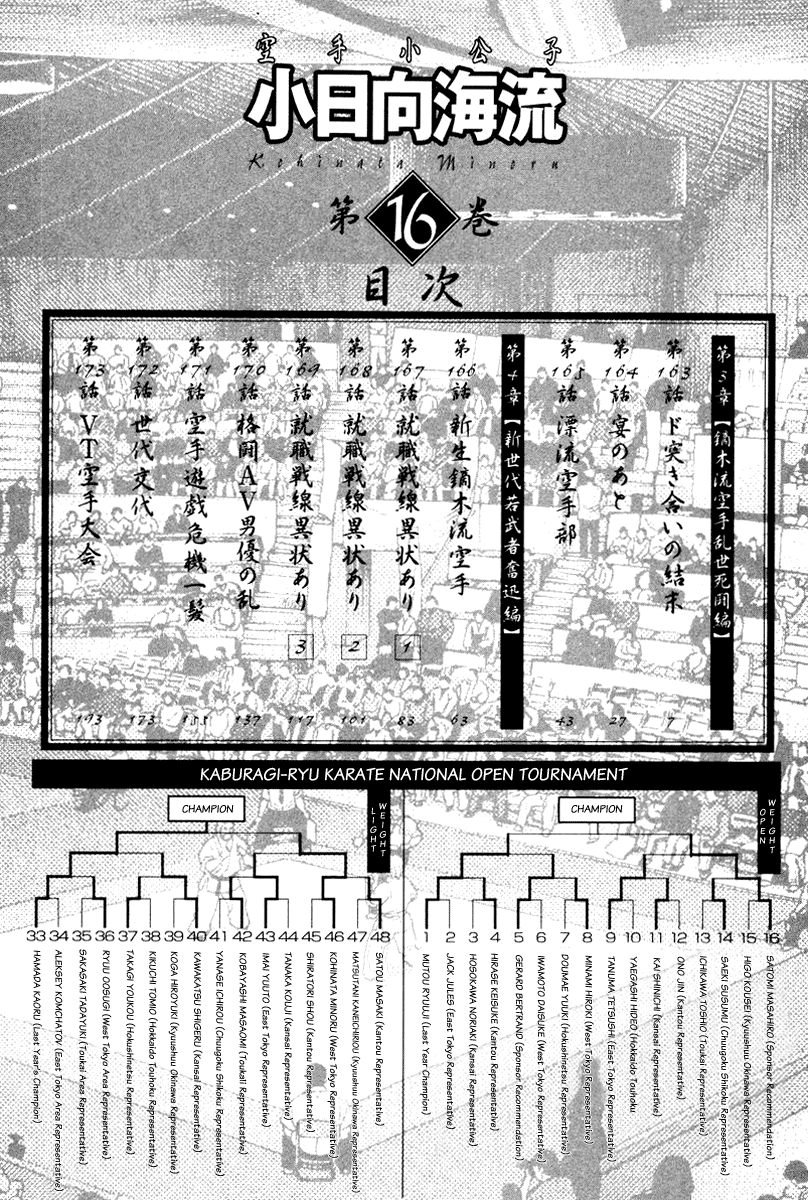 空手小公子
小日向海流
Kohinata Minoru
第16巻
目次
第3章【鏑木流空手乱世死闘編】
第163話 ド突き合いの結末 7
第164話 宴のあと 27
第165話 漂流空手部 43
第4章【新世代若武者奮迅編】
第166話 新生鏑木流空手 63
第167話 就職戦線異状あり 1 83
第168話 就職戦線異状あり 2 101
第169話 就職戦線異状あり 3 117
第170話 格闘AV男優の乱 137
第171話 空手遊戯危機一髪
第172話 世代交代 173
第173話 VT空手大会 193
KABURAGI-RYU KARATE NATIONAL OPEN TOURNAMENT
CHAMPION
LIGHT WEIGHT
33 HAMADA KAORU (Last Year's Champion)
34 ALEKSEY KOMCHATOV (East Tokyo Area Representative)
35 SAKASAKI TADAYUKI (Toukai Area Representative)
36 RYUU OOSUGI (West Tokyo Area Representative)
37 TAKAGI YOUKOU (Hokushinetsu Representative)
38 KIKUCHI TOMIO (Hokkaido Touhoku Representative)
39 KOGA HIROYUKI (Kyuushuu Okinawa Representative)
40 KAWAKATSU SHIGERU (Kansai Representative)
41 YANASE ICHIROU (Chuugoku Shikoku Representative)
42 KOBAYASHI MASAOMI (Toukai Representative)
43 IMAI YUUTO (East Tokyo Representative)
44 TANAKA KOUJI (Kansai Representative)
45 SHIRATORI SHOU (Kantou Representative)
46 KOHINATA MINORU (West Tokyo Representative)
47 MATSUTANI KANEICHIROU (Kyuushuu Okinawa Representative)
48 SATOU MASAKI (Kantou Representative)
CHAMPION
OPEN WEIGHT
1 MUTOU RYUUJI (Last Year Champion)
2 JACK JULES (East Tokyo Representative)
3 HOSOKAWA NORIAKI (Kansai Representative)
4 HIRASE KEISUKE (Kantou Representative)
5 GERARD BERTRAND (Sponsor Recommendation)
6 IWAMOTO DAISUKE (West Tokyo Representative)
7 DOUMAE YUUKI (Hokushinetsu Representative)
8 MINAMI HIROKI (West Tokyo Representative)
9 TANUMA TETSUSHI (East Tokyo Representative)
10 YAEGASHI HIDEO (Hokkaido Touhoku
11 KAI SHINICHI (Kansai Representative)
12 ONO JIN (Kantou Representative)
13 ICHIKAWA TOSHIO (Toukai Representative)
14 SAEKI SUSUMU (Chuugoku Shikoku Representative)
15 HIGO KOUSEI (Kyuushuu Okinawa Representative)
16 SATOMI MASAHIRO (Sponsor Recommendation)